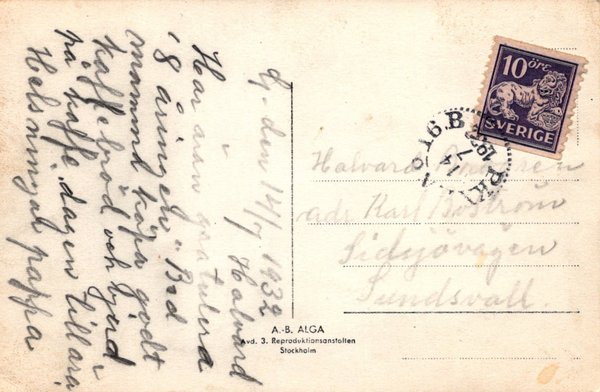 G. den 14/7 1932
Halvard
Har äran gratulera
18 åringen. Bed
mamma köpa godt
kaffebröd och bjud
på kaffe dagen i ära
Helsningal pappa
10 ÖRE
SVERIGE
16.B
PKXP
Halvard
adr. Karl Boström
Sidsjövägen
Sundsvall.
A.-B. ALGA
Avd. 3. Reproduktionsanstalten
Stockholm